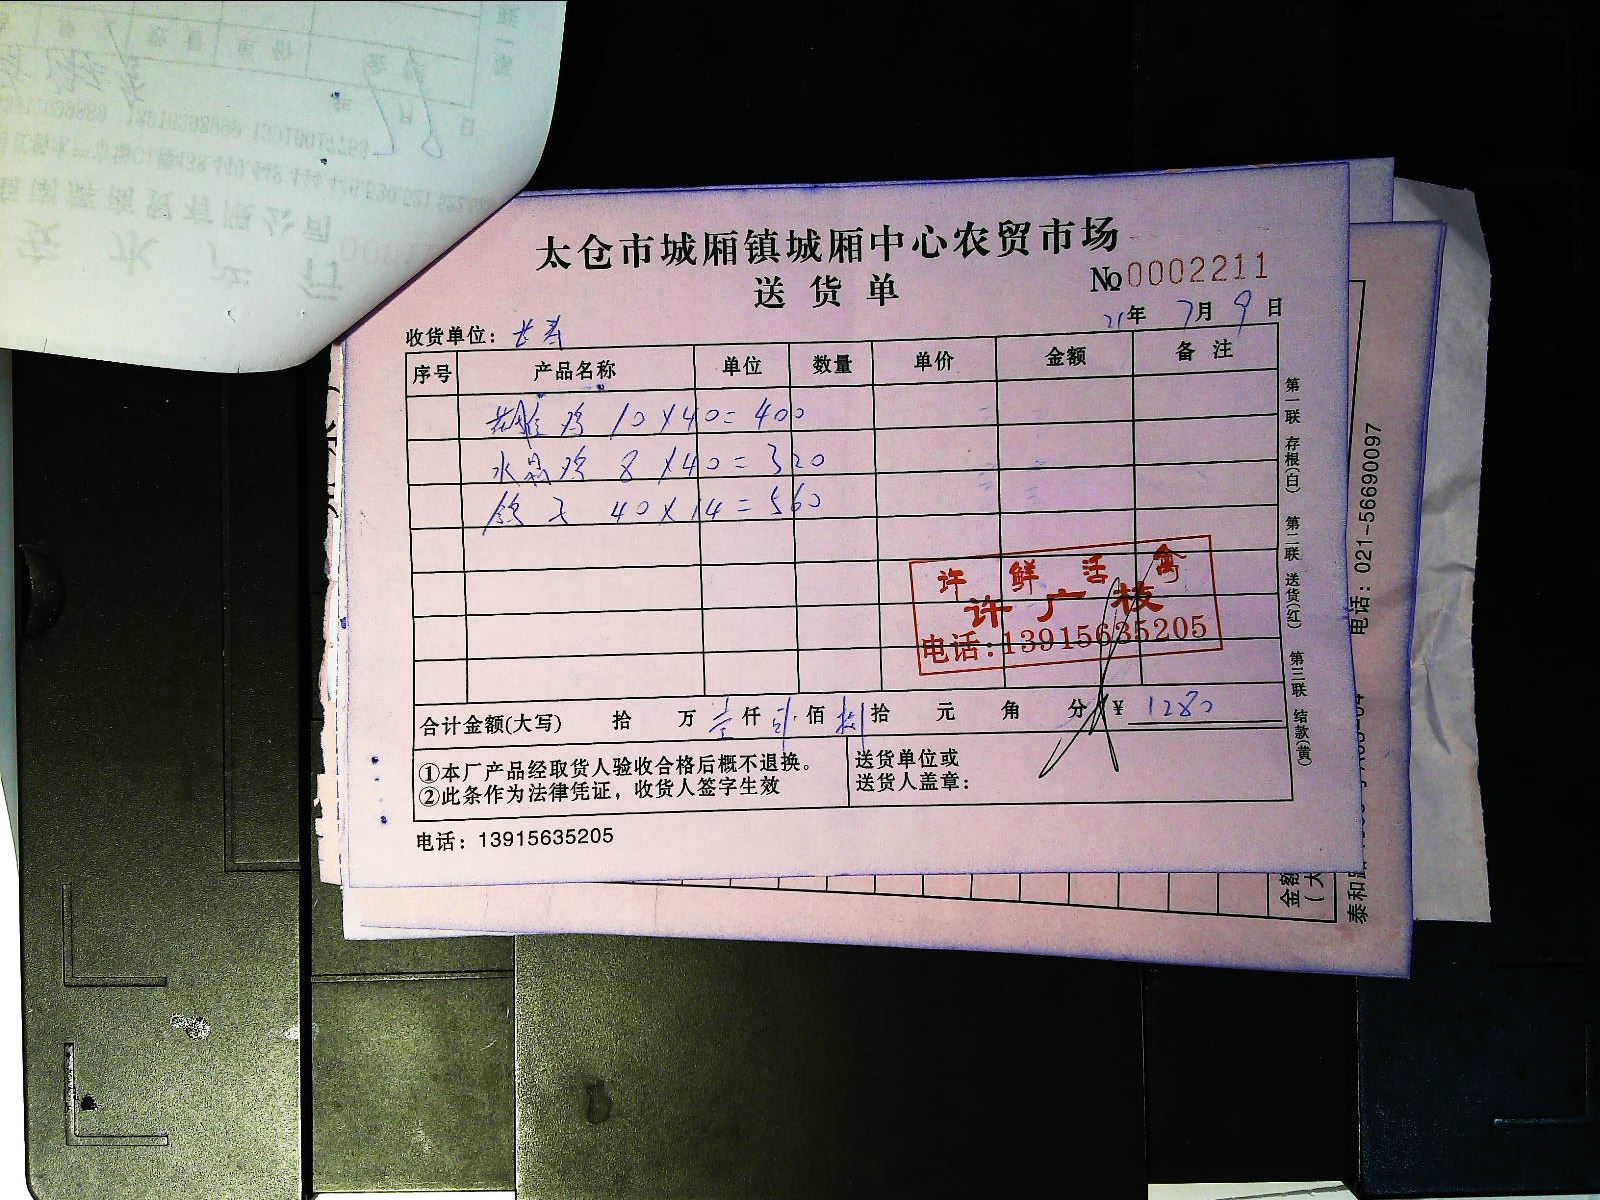 太仓市城厢镇城厢中心农贸市场
送货单
№0002211
收货单位：长寿
21年 7月 9日
序号 产品名称 单位 数量 单价 金额 备注
鸡 10×40=400
水晶鸡 8×40=320
40×14=560
许鲜活禽
许广枝
电话:13915635205
合计金额(大写) 拾 万 壹仟 佰 捌拾 元 角 分 ¥ 1280
①本厂产品经取货人验收合格后概不退换。
②此条作为法律凭证，收货人签字生效
送货单位或
送货人盖章：
电话：13915635205
第一联 存根(白) 第二联 送货(红) 第三联 结款(黄)
电话：021-56690097
金额
(大
泰和路